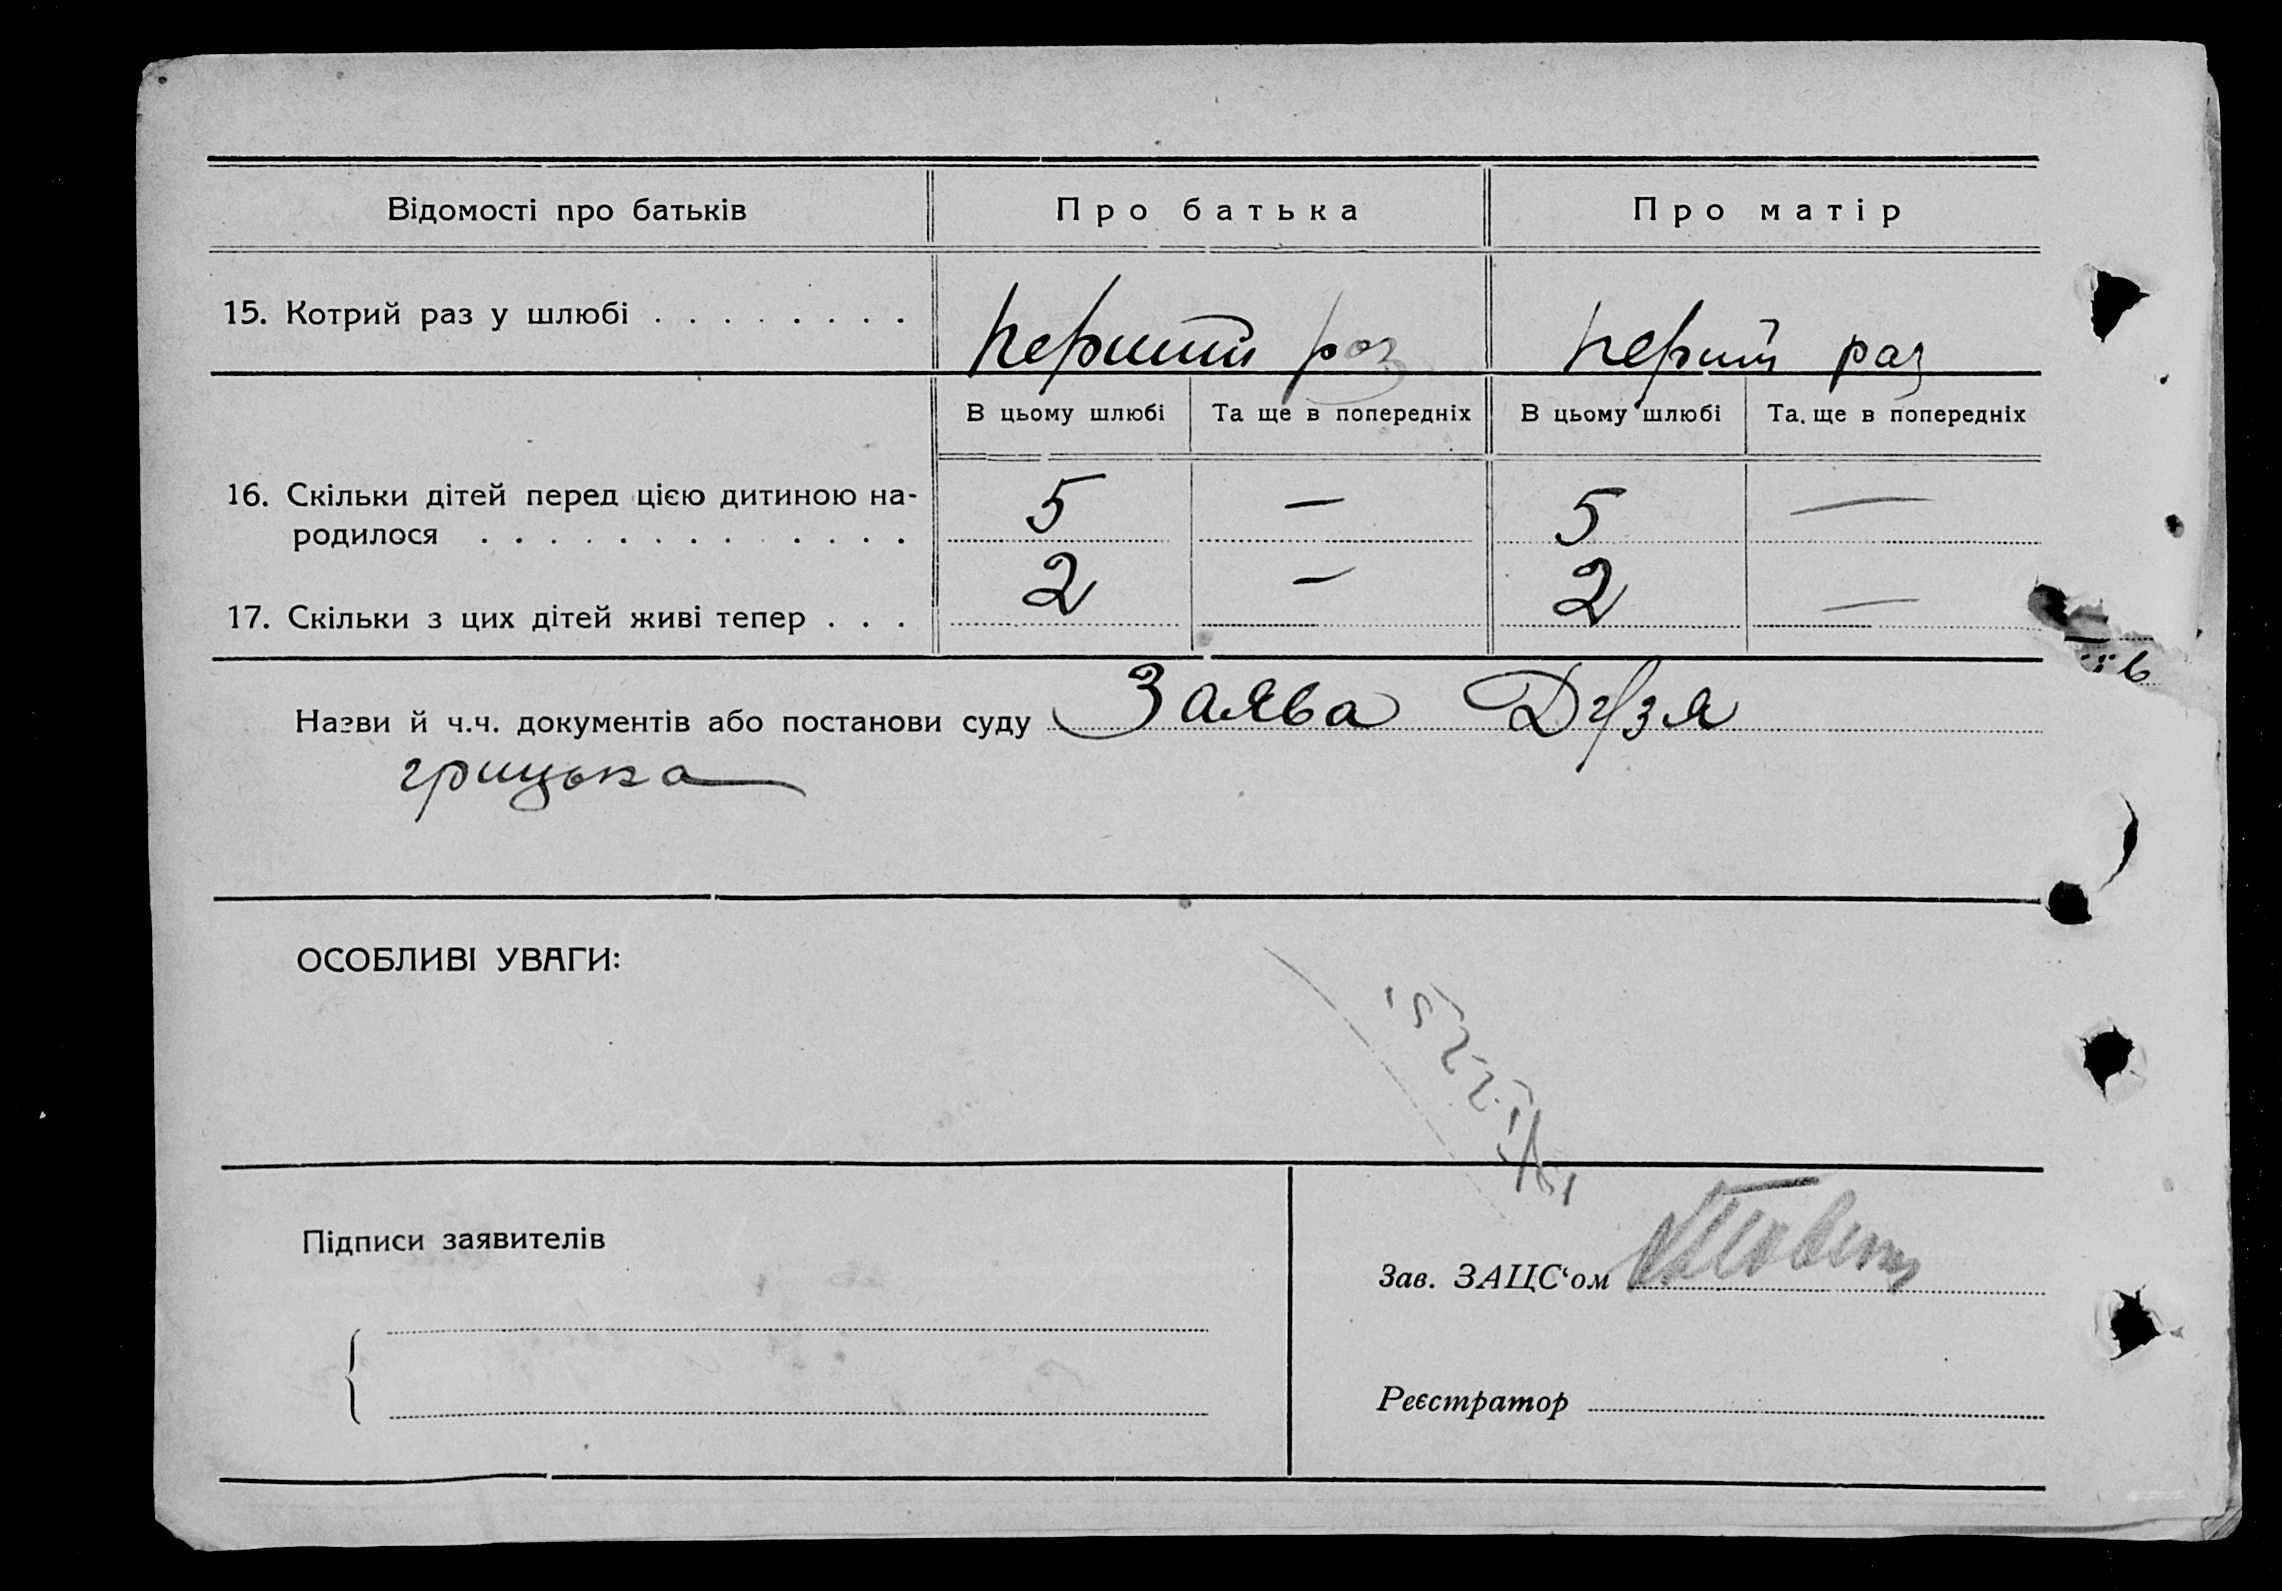 Відомості про батьків Про батька Про матір
15. Котрий раз у шлюбі . . . . . . . . перший раз перший раз
В цьому шлюбі Та ще в попередніх В цьому шлюбі Та ще в попередніх
16. Скільки дітей перед цією дитиною на-
родилося . . . . . . . . . . . . . 5 — 5 —
17. Скільки з цих дітей живі тепер . . . 2 — 2 —
Назви й ч.ч. документів або постанови суду Заява
грицька
ОСОБЛИВІ УВАГИ:
Підписи заявителів
Зав. ЗАЦС‘ом
Реєстратор